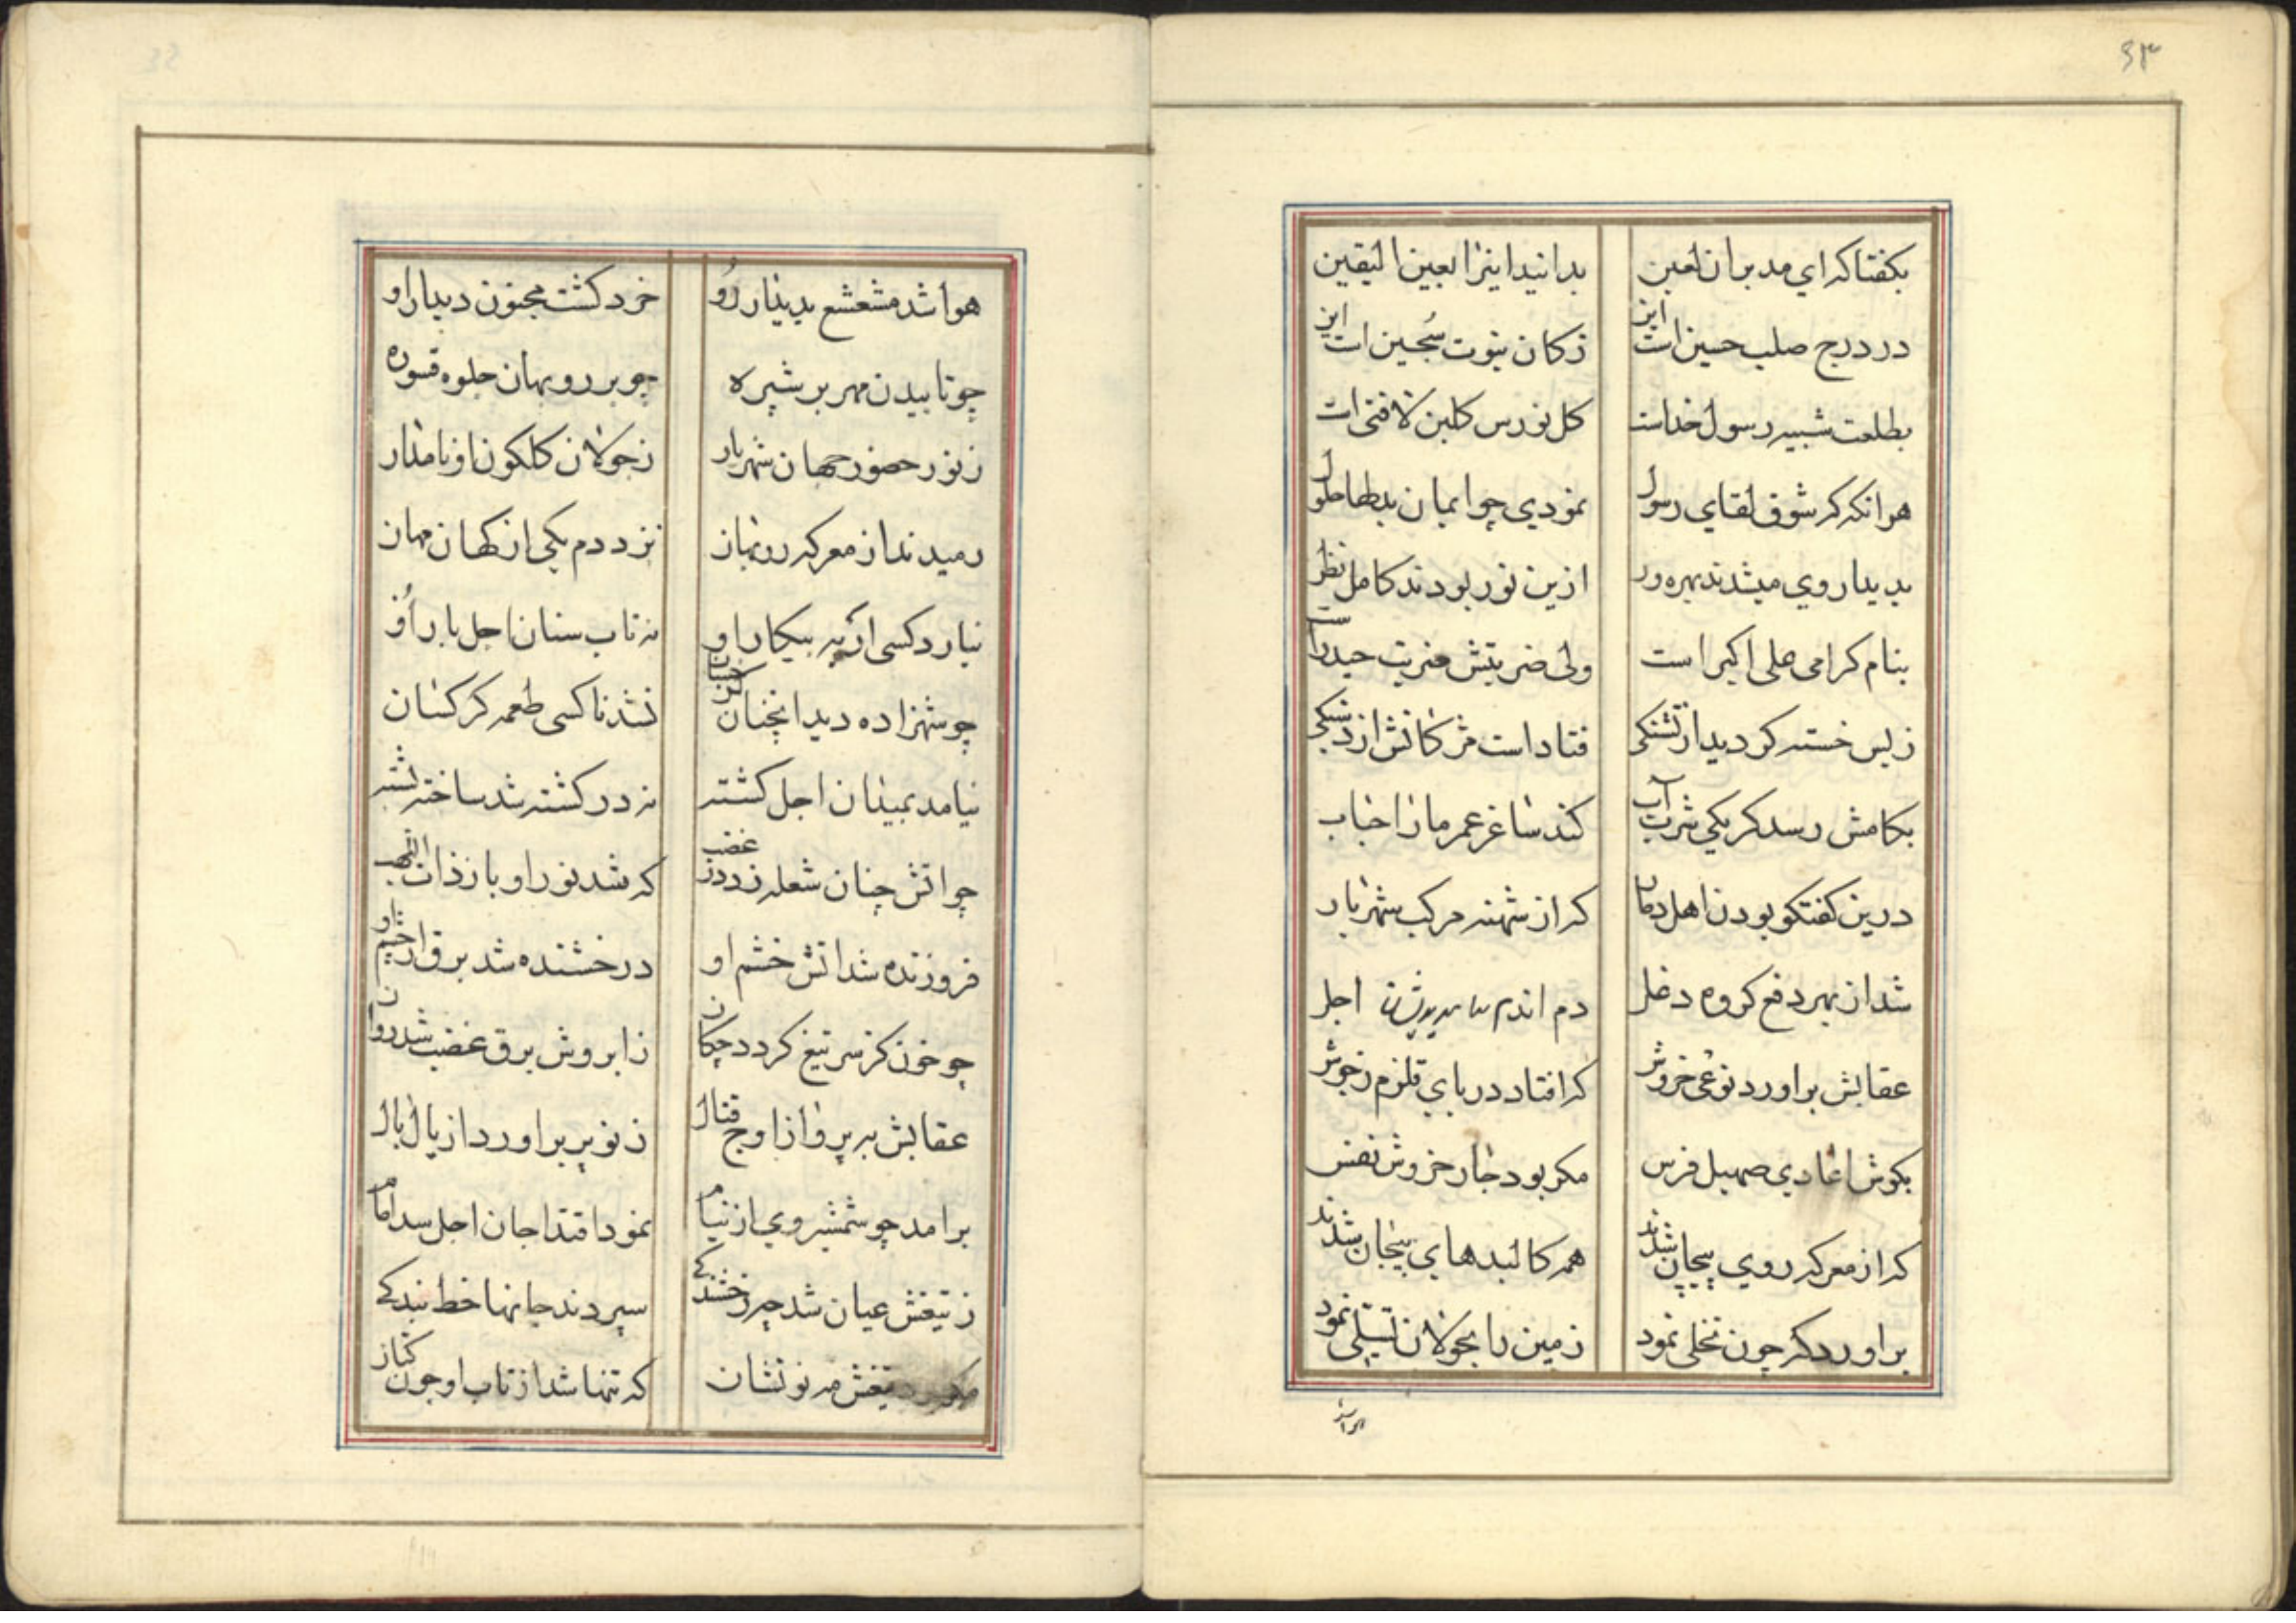 ۶۳
بکفتا که ای مدبران لعین بدانید اینرا بعین الیقین
در درج صلب حسین است این زکان نبوت سجین است این
بطلعت شبیه رسول خداست کل نورس کلبن لافتی است
هرانکه که شوق لقای رسول نمودی چو ایمان بدلها حلول
بدیدار وی میشدند بهره ور ازین نور بودند کامل نظر
بنام کرامی علی اکبر است ولی ضربتش ضربت حیدر است
زبس خسته کردید از تشنکی فتاد است مژکانش از
بکامش رسد کر یکی شربت آب کند ساغر عمر ما را حباب
درین کفتکو بودن اهل دمار که از شهنه مرکب شهریار
شد از بهر دفع کروه دغل دم اندم اجل
عقابش براورد نوعی خروش که افتاد دریای قلزم زجوش
بکوش اعادی صهیل فرس مکر بود جانرا خروش نفس
که از معرکه روی پیچان شدند همه کالبدهای بیجان شدند
براورد کر چون تجلی نمود زمین را بجولان تسلی نمود
هوا شد
هوا شد مشعشع بدینار رو خرد کشت مجنون دیدار او
چو تابیدن مهر بر شپره چو بر روبهان جلوه قسوره
ز نور حضور جهان شهریار ز جولان کلکون او نامدار
رمیدند از معرکه روبهان نزد دم یکی از کهان مهان
نیارد کسی از پیکار او نه تاب سنان اجل بار او
چو شهزاده دید انچنان نشد تا کسی طعمه کرکسان
نیامد بمیدان اجل کشته نه در کشته شد ساخته پشته
چو اتش چنان شعله زد در غضب که شد نور او با زذات اللهب
فروزنده شد اتش خشم او درخشنده شد برق از چشم او
چو خون کز سر تیغ کردد چکان ز ابروش برق غضب شد روان
عقابش به پرواز اوج قتال ز نو پر براورد از یال بال
برامد چو شمشیر وی از نیام نمود اقتدا جان اجل شد امام
ز تیغش عیان شد چو رخشندکی سپردند جانها خط بندکی
تیغش مه نو نشان که تنها شد از تاب او چون کتان